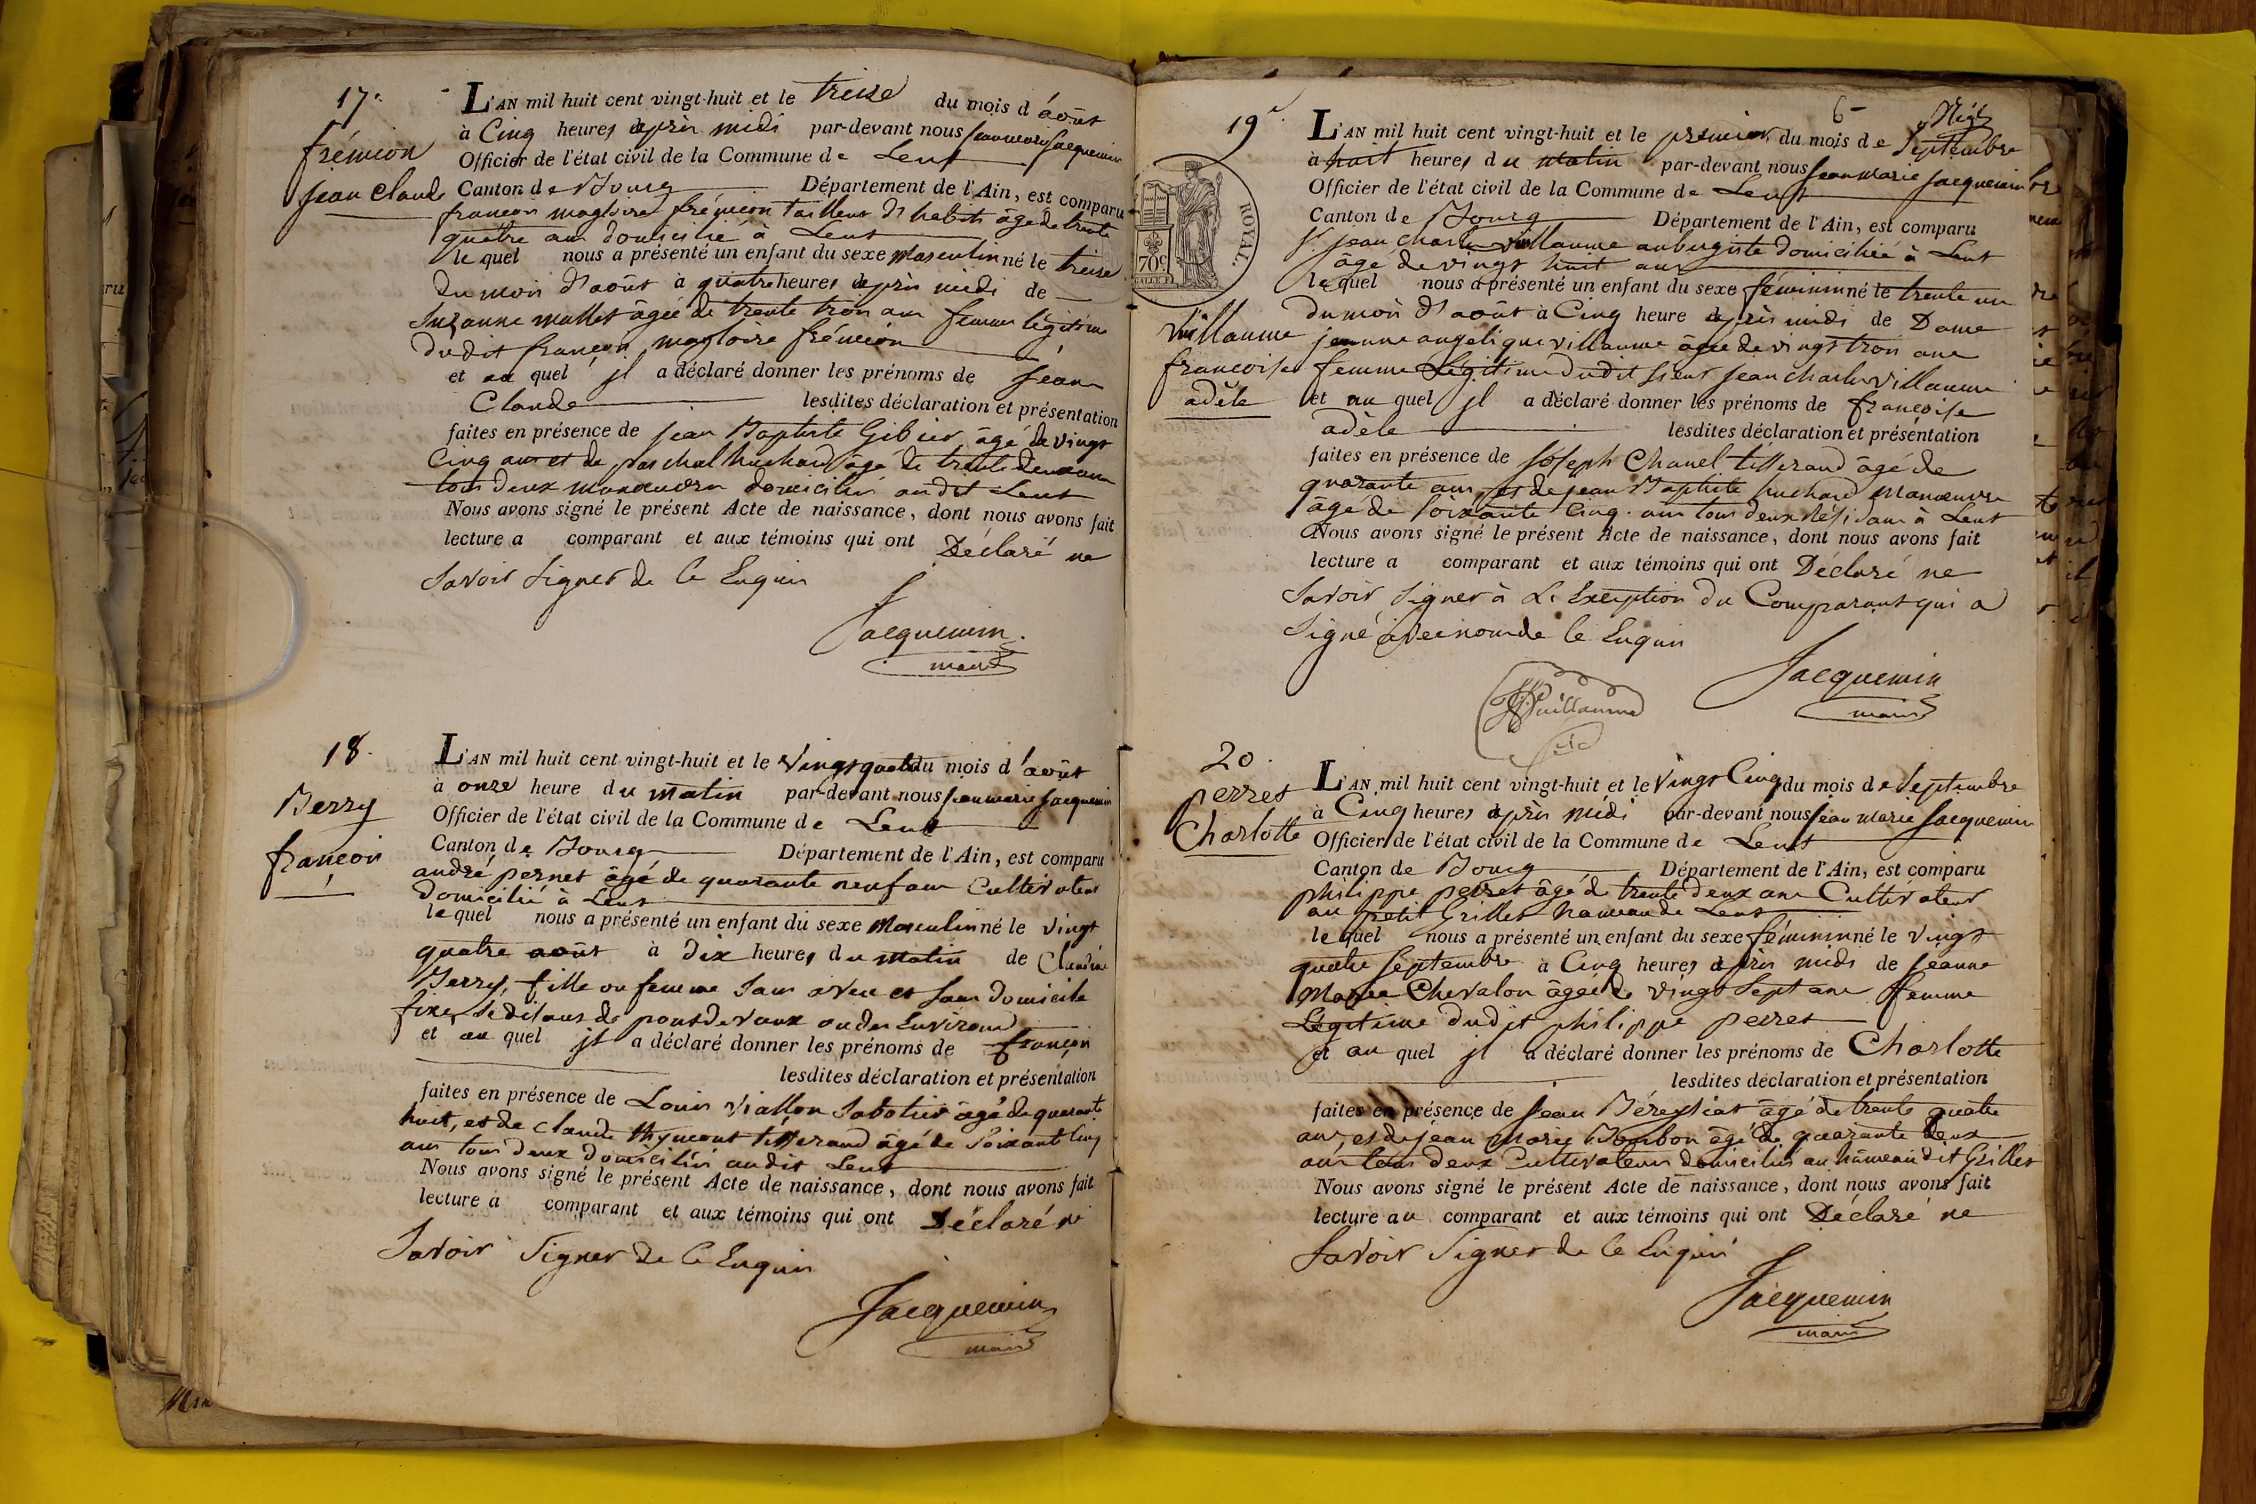 17.
frémion
jean Claude
L'AN mil huit cent vingt-huit et le treize du mois d'août
à Cinq heures après midi par-devant nous jean marie jacquemin
Officier de l'état civil de la Commune de Lent
Canton de Bourg Département de l'Ain, est comparu
françois magloire frémion tailleur d'habits âgé de trente
quatre ans domicilié à Lent
lequel nous a présenté un enfant du sexe Masculin né le treize
du mois d'août à quatre heures après midi de
Suzanne mallet âgée de trente trois ans femme légitime
dudit françois magloire frémion
et au quel jl a déclaré donner les prénoms de jean
Claude lesdites déclaration et présentation
faites en présence de jean Baptiste Gibier âgé de vingt
Cinq ans et de paschal huchard âgé de trente deux ans
tous deux manœuvres domiciliés audit Lent
Nous avons signé le présent Acte de naissance, dont nous avons fait
lecture a comparant et aux témoins qui ont Déclaré ne
Savoir Signer de ce Enquis
Jacquemin
maire
18.
Berry
françois
L'AN mil huit cent vingt-huit et le Vingt quatre du mois d'août
à onze heure du matin par-devant nous jean marie jacquemin
Officier de l'état civil de la Commune de Lent
Canton de Bourg Département de l'Ain, est comparu
andré pernet âgé de quarante neuf ans Cultivateur
domicilié à Lent
lequel nous a présenté un enfant du sexe Masculin né le vingt
quatre août à dix heures du matin de Claudine
Berry, fille ou femme Sans aveu et sans domicile
fixe, Se disant de pont de vaux ou des Environs
et au quel jl a déclaré donner les prénoms de françois
lesdites déclaration et présentation
faites en présence de Louis Viallon Sabotier âgé de quarante
huit, et de claude thymont tisserand âgé de Soixante Cinq
ans tous deux domiciliés audit Lent
Nous avons signé le présent Acte de naissance, dont nous avons fait
lecture a comparant et aux témoins qui ont Déclaré ne
Savoir Signer de Ce Enquis
Jacquemin
maire
6
19e
ROYAL.
70c
Vuillaume
françoise
adèle
L'AN mil huit cent vingt-huit et le premier du mois de Septembre
à huit heures du matin par-devant nous jean marie jacquemin
Officier de l'état civil de la Commune de Lent
Canton de Bourg Département de l'Ain, est comparu
Sr jean charles Vuillaume aubergiste domicilié à Lent
âgé de vingt huit ans
lequel nous a présenté un enfant du sexe féminin né le trente un
du mois d'août à Cinq heure après midi de Dame
jeanne angelique villaume âgée de vingt trois ans
femme Légitime dudit Sieur jean charles villaume
et au quel jl a déclaré donner les prénoms de françoise
adèle lesdites déclaration et présentation
faites en présence de joseph Chanel tisserand âgé de
quarante ans, et de jean Baptiste huchard Manœuvre
âgé de Soixante Cinq ans tous deux Résidans à Lent
Nous avons signé le présent Acte de naissance, dont nous avons fait
lecture a comparant et aux témoins qui ont Déclaré ne
Savoir Signer à L'Exception du Comparant qui a
Signé avec nous de ce Enquis
Vuillaume
Jacquemin
maire
20.
perret
Charlotte
L'AN mil huit cent vingt-huit et le Vingt Cinq du mois de Septembre
à Cinq heures après midi par-devant nous jean marie jacquemin
Officier de l'état civil de la Commune de Lent
Canton de Bourg Département de l'Ain, est comparu
philippe perret âgé de trente deux ans Cultivateur
au petit Grillet hameau de Lent
lequel nous a présenté un enfant du sexe féminin né le vingt
quatre Septembre à Cinq heures après midi de jeanne
Marie Chevalon âgée de vingt Sept ans femme
Légitime dudit philippe perret
et au quel jl a déclaré donner les prénoms de Charlotte
lesdites déclaration et présentation
faites en présence de jean Béreyziat âgé de trente quatre
ans, et de jean Marie Bonbon âgé de quarante deux
ans tous deux Cultivateurs domiciliés au hameau dit Grillet
Nous avons signé le présent Acte de naissance, dont nous avons fait
lecture au comparant et aux témoins qui ont Déclaré ne
Savoir Signer de Ce Enquis
Jacquemin
maire